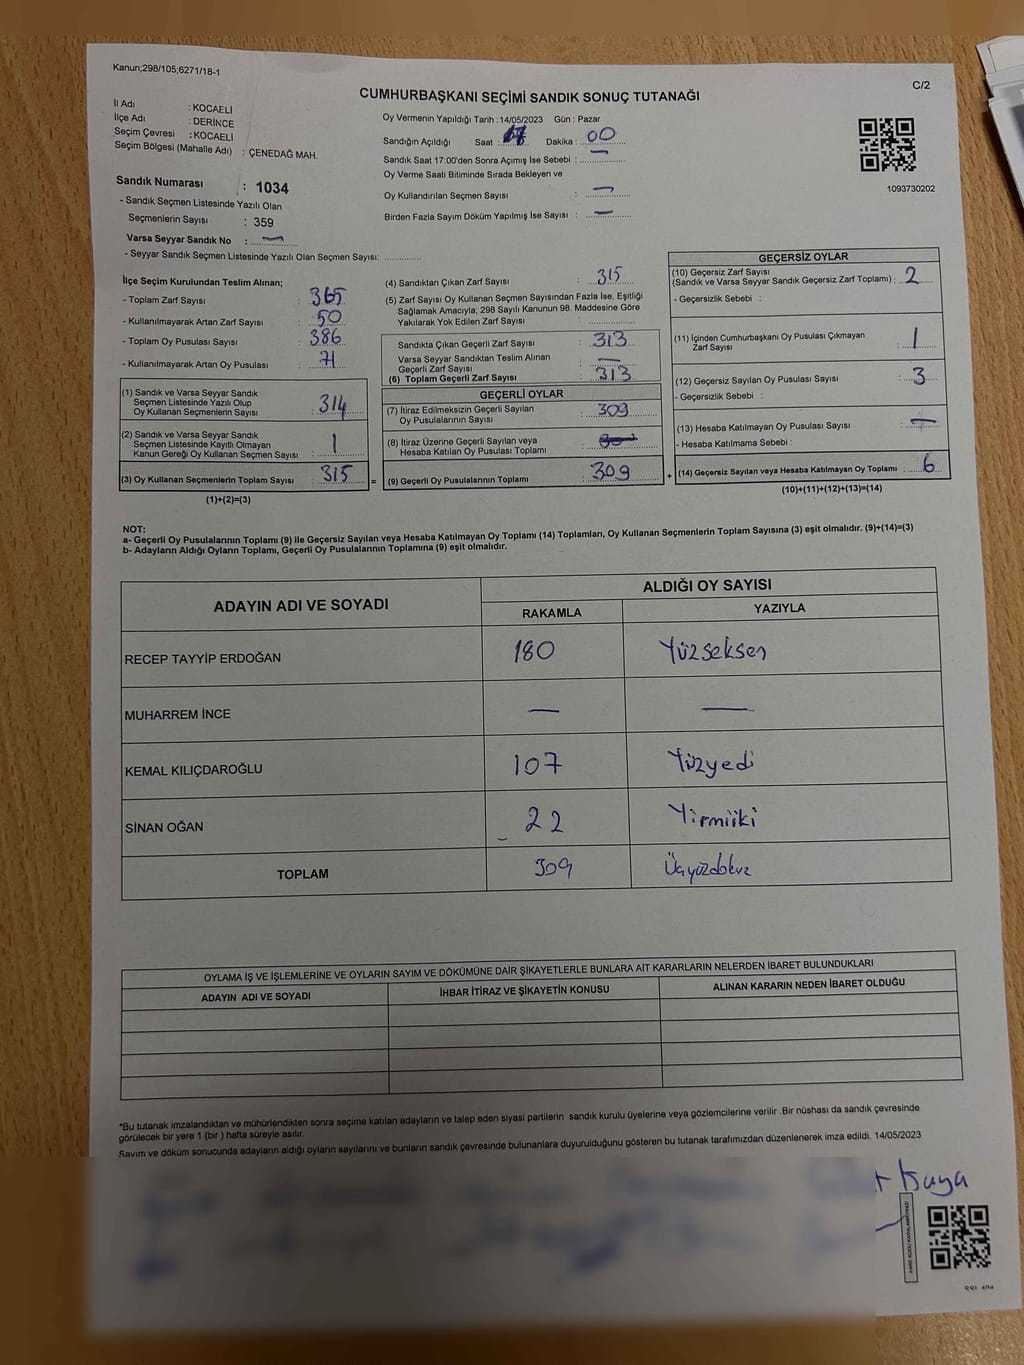 Kanun;298/105;6271/18-1
C/2
CUMHURBAŞKANI SEÇİMİ SANDIK SONUÇ TUTANAĞI
İl Adı : KOCAELİ
İlçe Adı : DERİNCE
Seçim Çevresi : KOCAELİ
Seçim Bölgesi (Mahalle Adı) : ÇENEDAĞ MAH.
Sandık Numarası : 1034
- Sandık Seçmen Listesinde Yazılı Olan
Seçmenlerin Sayısı : 359
Varsa Seyyar Sandık No : —
- Seyyar Sandık Seçmen Listesinde Yazılı Olan Seçmen Sayısı:
Oy Vermenin Yapıldığı Tarih :14/05/2023 Gün : Pazar
Sandığın Açıldığı Saat : 17 Dakika : 00
Sandık Saat 17:00'den Sonra Açımış İse Sebebi : —
Oy Verme Saati Bitiminde Sırada Bekleyen ve
Oy Kullandırılan Seçmen Sayısı : —
Birden Fazla Sayım Döküm Yapılmış İse Sayısı : —
1093730202
İlçe Seçim Kurulundan Teslim Alınan;
- Toplam Zarf Sayısı : 365
- Kullanılmayarak Artan Zarf Sayısı : 50
- Toplam Oy Pusulası Sayısı : 386
- Kullanılmayarak Artan Oy Pusulası : 71
(1) Sandık ve Varsa Seyyar Sandık
Seçmen Listesinde Yazılı Olup
Oy Kullanan Seçmenlerin Sayısı : 314
(2) Sandık ve Varsa Seyyar Sandık
Seçmen Listesinde Kayıtlı Olmayan
Kanun Gereği Oy Kullanan Seçmen Sayısı : 1
(3) Oy Kullanan Seçmenlerin Toplam Sayısı : 315
(1)+(2)=(3)
(4) Sandıktan Çıkan Zarf Sayısı : 315
(5) Zarf Sayısı Oy Kullanan Seçmen Sayısından Fazla İse, Eşitliği
Sağlamak Amacıyla; 298 Sayılı Kanunun 98. Maddesine Göre
Yakılarak Yok Edilen Zarf Sayısı :
Sandıkta Çıkan Geçerli Zarf Sayısı : 313
Varsa Seyyar Sandıktan Teslim Alınan
Geçerli Zarf Sayısı : —
(6) Toplam Geçerli Zarf Sayısı : 313
GEÇERLİ OYLAR
(7) İtiraz Edilmeksizin Geçerli Sayılan
Oy Pusulasının Sayısı : 309
(8) İtiraz Üzerine Geçerli Sayılan veya
Hesaba Katılan Oy Pusulası Toplamı :
= (9) Geçerli Oy Pusulalarının Toplamı : 309 +
GEÇERSİZ OYLAR
(10) Geçersiz Zarf Sayısı
(Sandık ve Varsa Seyyar Sandık Geçersiz Zarf Toplamı) : 2
- Geçersizlik Sebebi :
(11) İçinden Cumhurbaşkanı Oy Pusulası Çıkmayan
Zarf Sayısı : 1
(12) Geçersiz Sayılan Oy Pusulası Sayısı : 3
- Geçersizlik Sebebi :
(13) Hesaba Katılmayan Oy Pusulası Sayısı : —
- Hesaba Katılmama Sebebi :
(14) Geçersiz Sayılan veya Hesaba Katılmayan Oy Toplamı : 6
(10)+(11)+(12)+(13)=(14)
NOT:
a- Geçerli Oy Pusulalarının Toplamı (9) ile Geçersiz Sayılan veya Hesaba Katılmayan Oy Toplamı (14) Toplamları, Oy Kullanan Seçmenlerin Toplam Sayısına (3) eşit olmalıdır. (9)+(14)=(3)
b- Adayların Aldığı Oyların Toplamı, Geçerli Oy Pusulalarının Toplamına (9) eşit olmalıdır.
ADAYIN ADI VE SOYADI
ALDIĞI OY SAYISI
RAKAMLA YAZIYLA
RECEP TAYYİP ERDOĞAN 180 Yüzseksen
MUHARREM İNCE — —
KEMAL KILIÇDAROĞLU 107 Yüzyedi
SİNAN OĞAN 22 Yirmiiki
TOPLAM 309 Üçyüzdokuz
OYLAMA İŞ VE İŞLEMLERİNE VE OYLARIN SAYIM VE DÖKÜMÜNE DAİR ŞİKAYETLERLE BUNLARA AİT KARARLARIN NELERDEN İBARET BULUNDUKLARI
ADAYIN ADI VE SOYADI İHBAR İTİRAZ VE ŞİKAYETİN KONUSU ALINAN KARARIN NEDEN İBARET OLDUĞU
*Bu tutanak imzalandıktan ve mühürlendikten sonra seçime katılan adayların ve talep eden siyasi partilerin sandık kurulu üyelerine veya gözlemcilerine verilir .Bir nüshası da sandık çevresinde
görülecek bir yere 1 (bir ) hafta süreyle asılır.
Sayım ve döküm sonucunda adayların aldığı oyların sayılarını ve bunların sandık çevresinde bulunanlara duyurulduğunu gösteren bu tutanak tarafımızdan düzenlenerek imza edildi. 14/05/2023